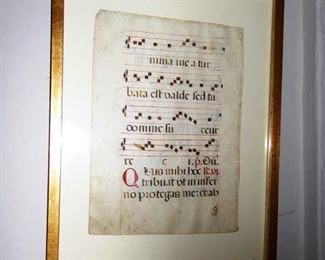 nima mea tur
bata est valde sed tu
domine su ccur
re
Quis mihi hoc
tribuat ut in infer
no protegas me: et ab